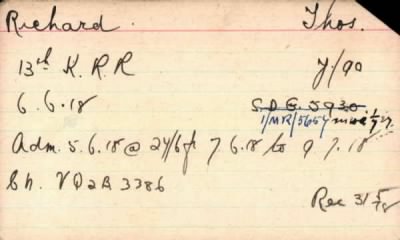 Richard. Thos.
13th K.R.R Y/90
6.6.18 S.D.G. 5930
1/MR/5654
Adm. 5.6.18 @ 24/6 fr 7.6.18 to 9.7.18
Ch. VQ2B 3386
Rec 31/5/78